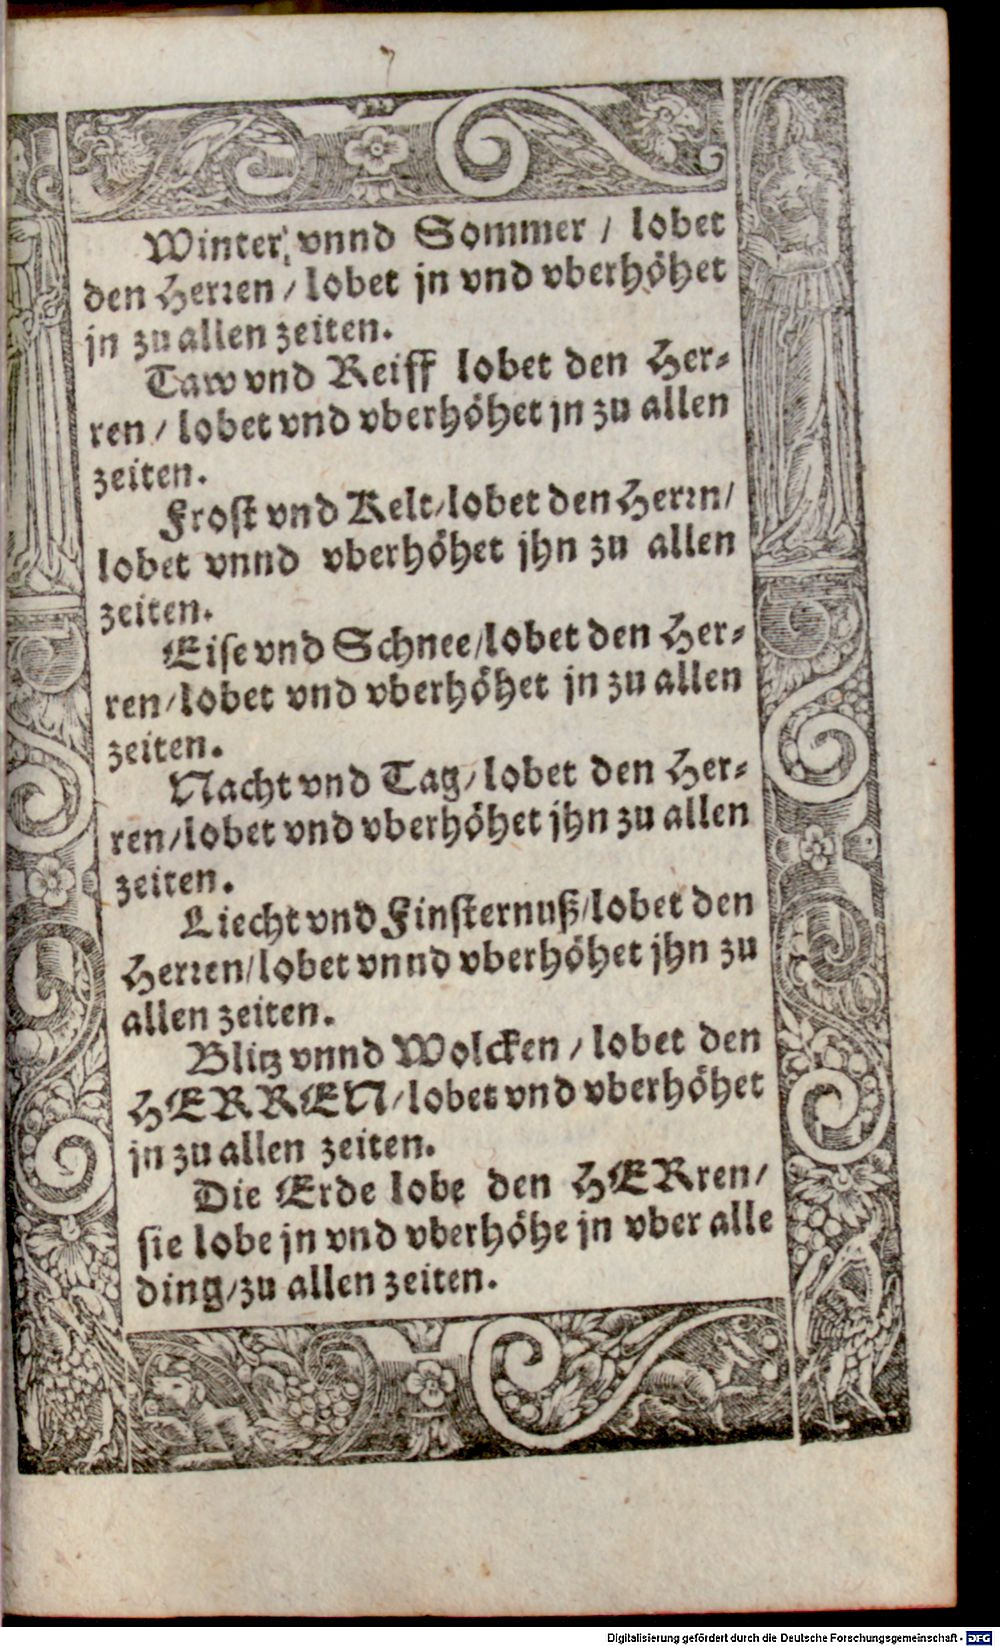 Winter, vnnd Sommer / lobet
den Herren / lobet jn vnd vberhöhet
jn zu allen zeiten.
Taw vnd Reiff lobet den Her-
ren / lobet vnd vberhöhet jn zu allen
zeiten.
Frost vnd Kelt/lobet den Herrn/
lobet vnnd vberhöhet jhn zu allen
zeiten.
Eise vnd Schnee/lobet den Her-
ren/lobet vnd vberhöhet jn zu allen
zeiten.
Nacht vnd Tag/lobet den Her-
ren/lobet vnd vberhöhet jhn zu allen
zeiten.
Liecht vnd Finsternuß/lobet den
Herren/lobet vnnd vberhöhet jhn zu
allen zeiten.
Blitz vnnd Wolcken / lobet den
HERREN/lobet vnd vberhöhet
jn zu allen zeiten.
Die Erde lobe den HERren/
sie lobe jn vnd vberhöhe jn vber alle
ding/zu allen zeiten.
Digitalisierung gefördert durch die Deutsche Forschungsgemeinschaft - DFG